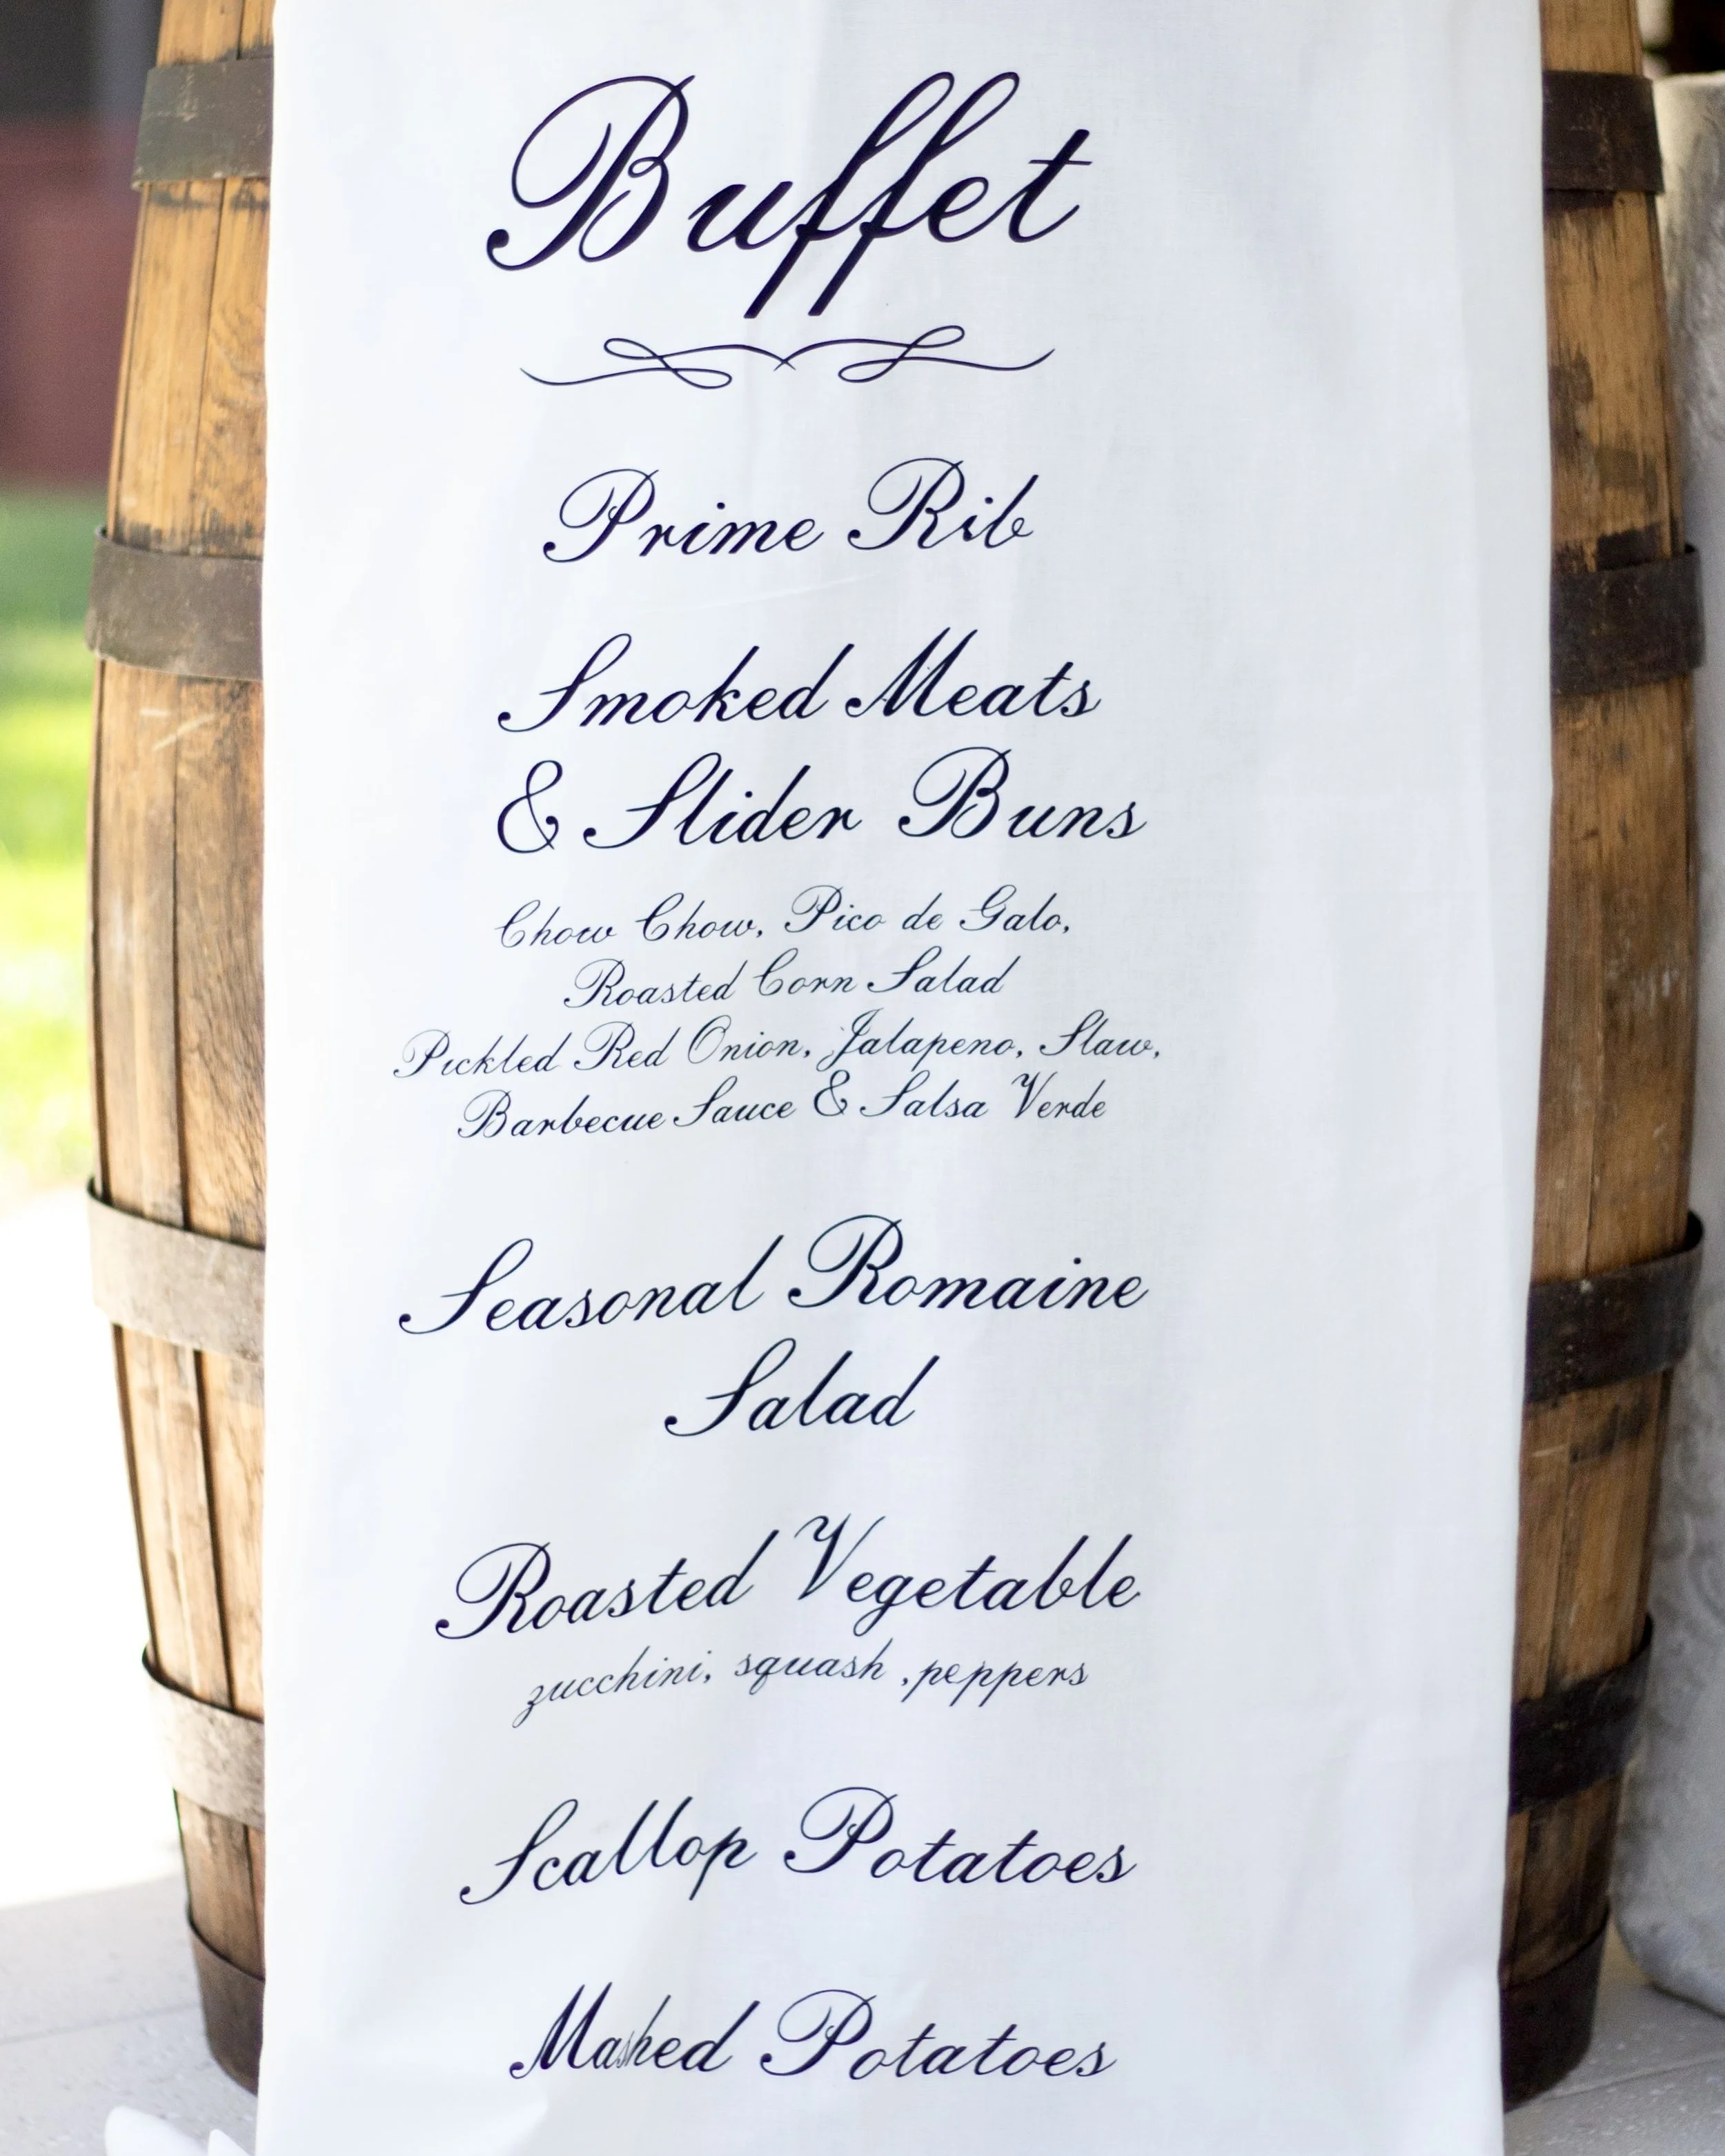 Buffet
Prime Rib
Smoked Meats
& Slider Buns
Chow Chow, Pico de Galo,
Roasted Corn Salad
Pickled Red Onion, Jalapeno, Slaw,
Barbecue Sauce & Salsa Verde
Seasonal Romaine
Salad
Roasted Vegetable
zucchini, squash ,peppers
Scallop Potatoes
Mashed Potatoes